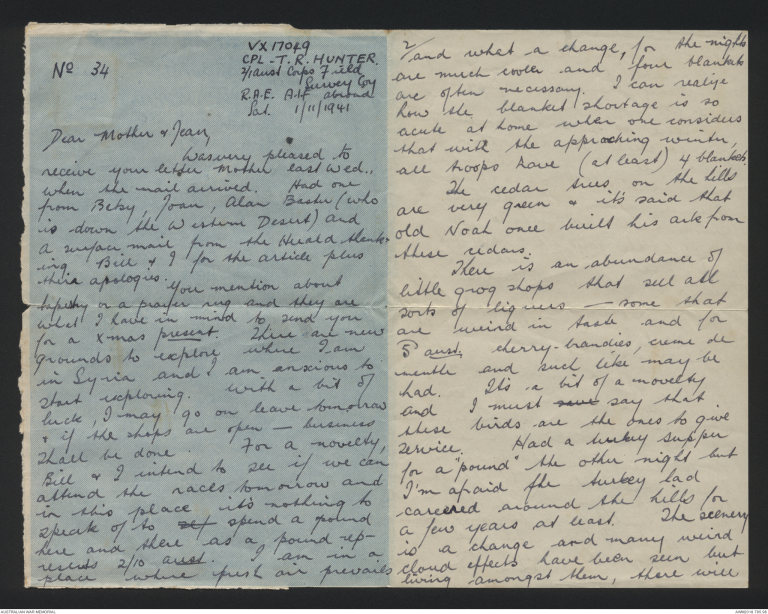 Nº 34
VX17049
CPL - T. R. HUNTER.
2/1 Aust Corps Field
Survey Coy
R.A.E. A.I.F abroad
Sat. 1/11/1941
Dear Mother & Jean,
Was very pleased to
receive your letter Mother last Wed.,
when the mail arrived. Had one
from Betsy, Joan, Alan Baster (who
is down the Western Desert) and
a surface mail from the Herald thank-
ing Bill & I for the article plus
their apologies.
You mention about
tapestry or a prayer rug and they are
what I have in mind to send you
for a Xmas present. There are new
grounds to explore where I am
in Syria and I am anxious to
start exploring. With a bit of
luck, I may go on leave tomorrow
& if the shops are open — business
shall be done. For a novelty,
Bill & I intend to see if we can
attend the races tomorrow and
in this place it's nothing to
speak of to spend a pound
here and there as a pound rep-
resents 2/10 aust. I am in a
place where fresh air prevails
2/ and what a change, for the nights
are much cooler and four blankets
are often necessary. I can realize
how the blanket shortage is so
acute at home when one considers
that with the approching winter,
all troops have (at least) 4 blankets.
The cedar trees on the hills
are very green & it's said that
old Noah once built his ark from
these cedars.
There is an abundance of
little grog shops that sell all
sorts of liquers — some that
are weird in taste and for
5/- aust. cherry-brandies, creme de
menthe and such like may be
had. It's a bit of a novelty
and I must say that
these birds are the ones to give
service. Had a turkey supper
for a "pound" the other night but
I'm afraid the turkey had
careered around the hills for
a few years at least. The scenery
is a change and many weird
cloud effects have been seen but
living amongst them, there will
AUSTRALIAN WAR MEMORIAL